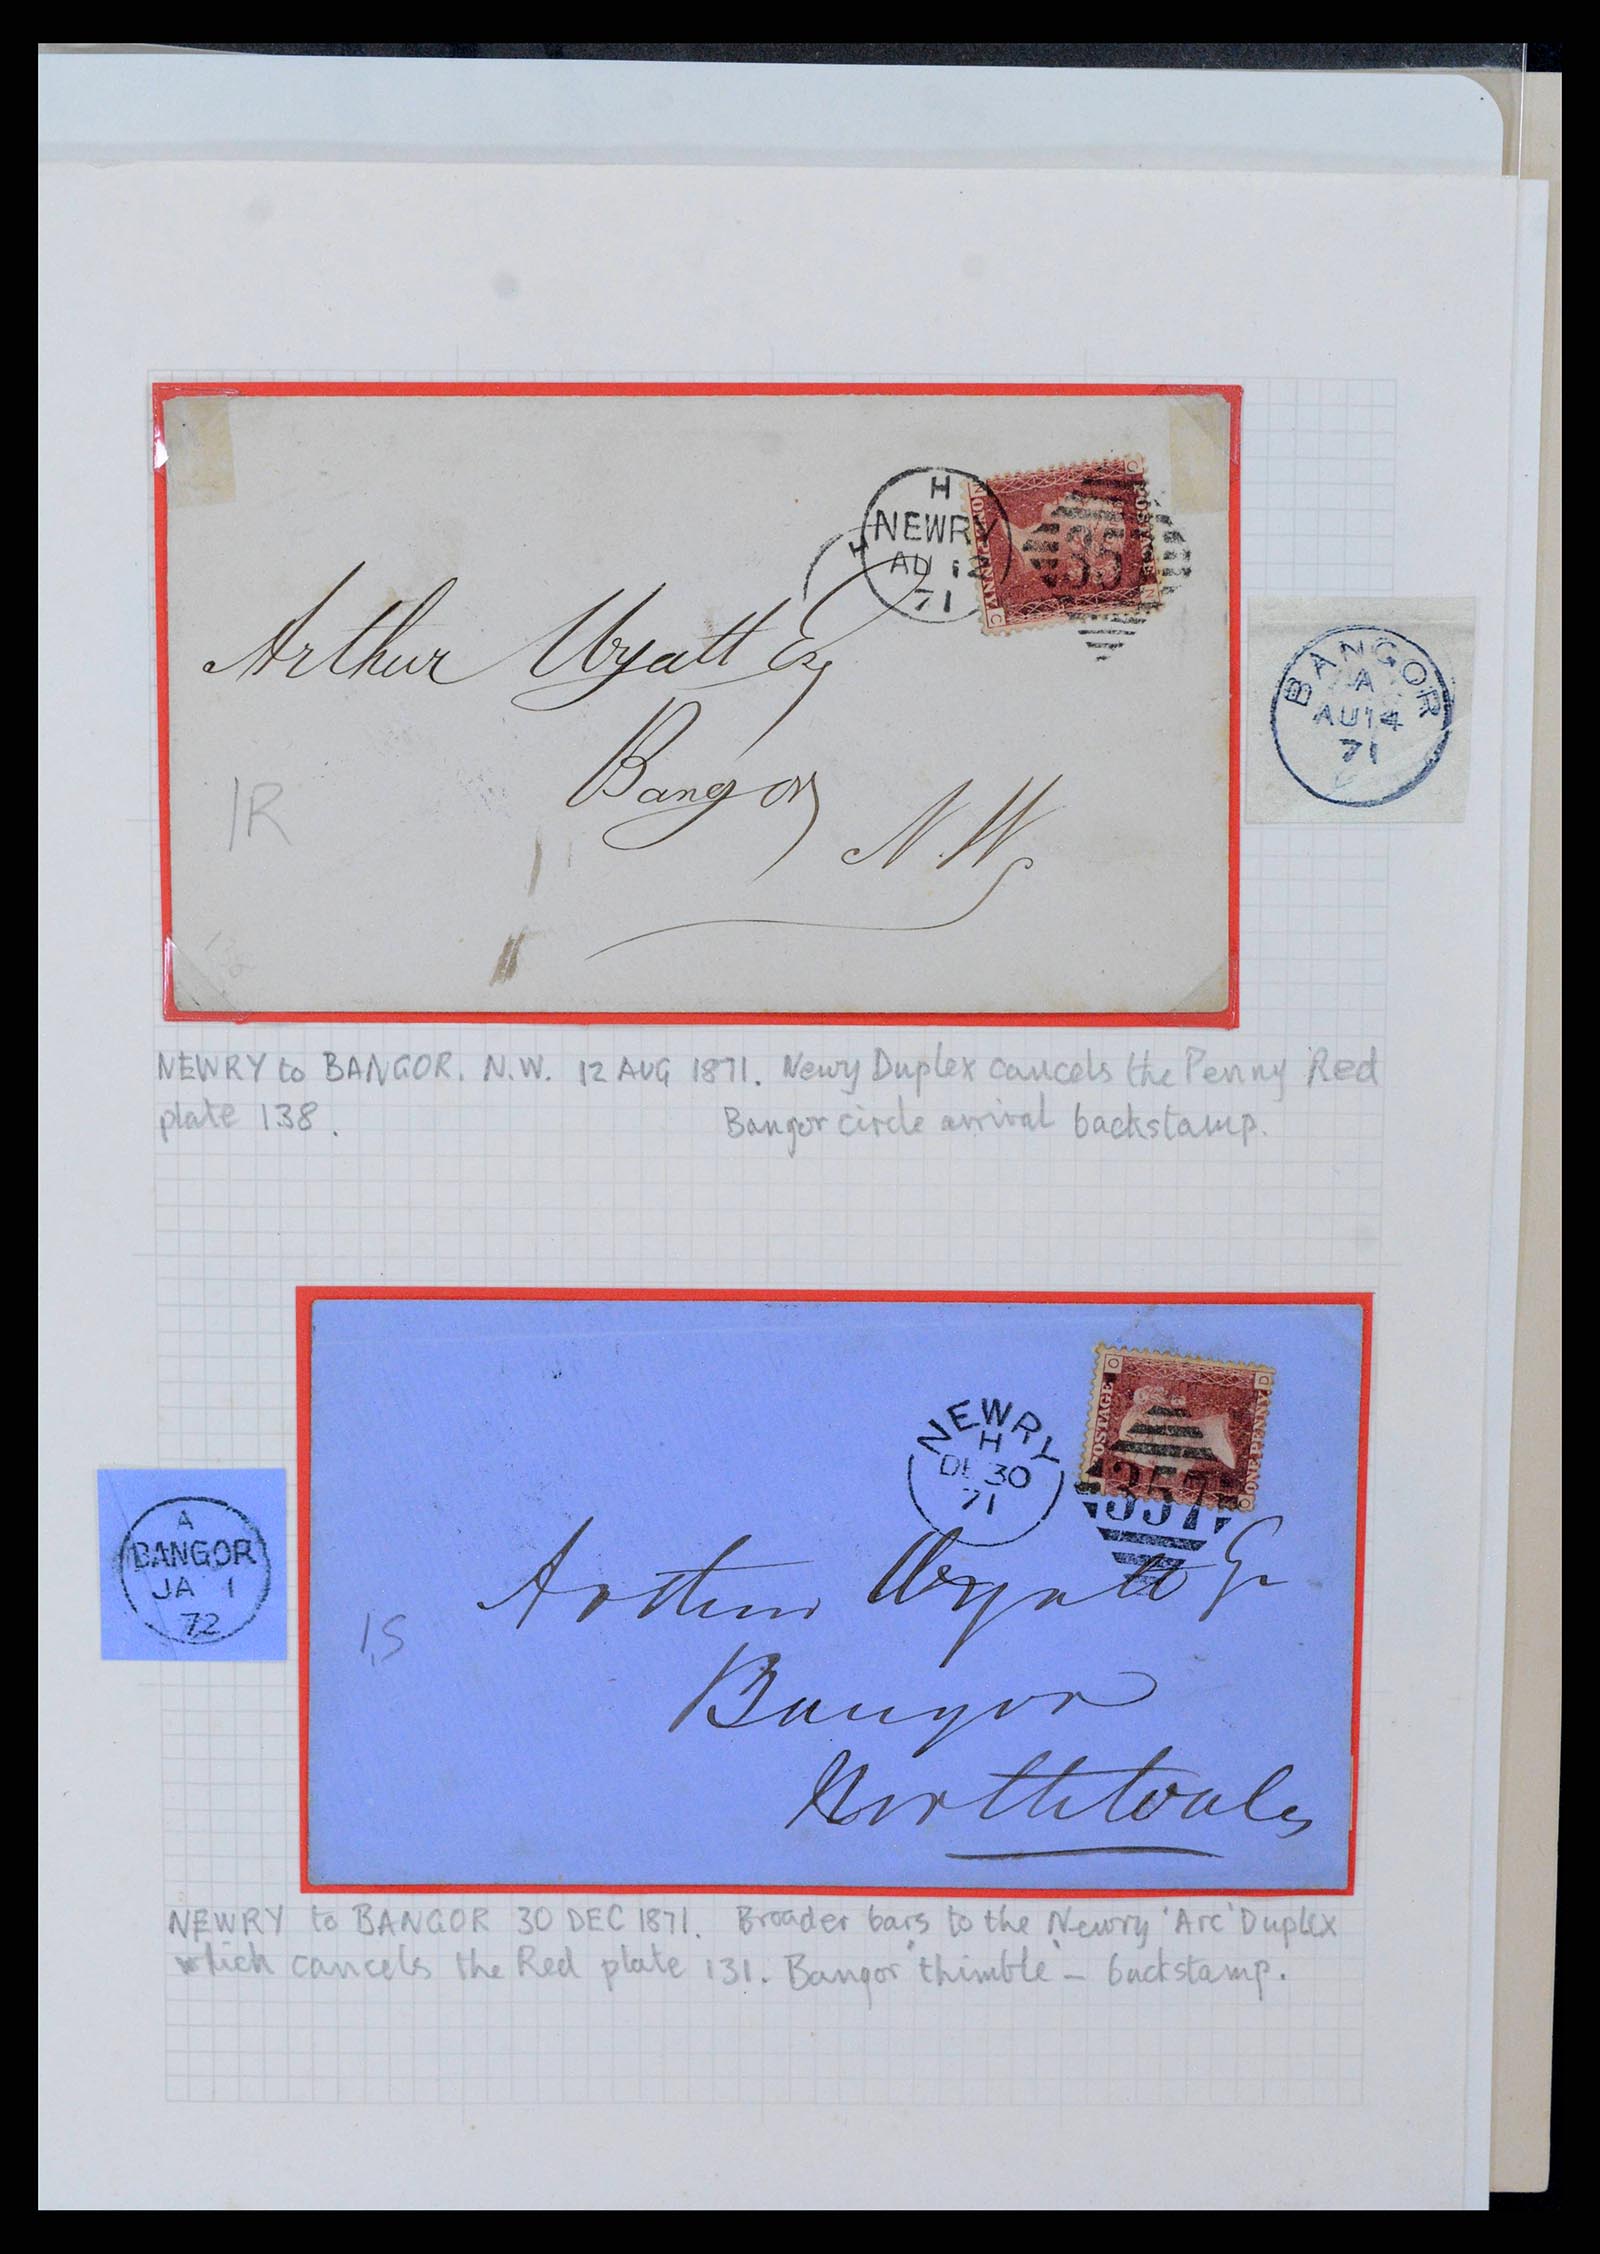 H
NEWRY
AU 12
71
H
35
POSTAGE
ONE PENNY
C
N
C
Arthur Wyatt Esq
Bangor
N.W.
1R
BANGOR
A
AU 14
71
NEWRY to BANGOR. N.W. 12 AUG 1871. Newry Duplex cancels the Penny Red
plate 138. Bangor circle arrival backstamp.
O
D
POSTAGE
ONE PENNY
O
NEWRY
H
DE 30
71
357
A
BANGOR
JA 1
72
Arthur Wyatt Esq
Bangor
North Wales
1,S
NEWRY to BANGOR 30 DEC 1871. Broader bars to the Newry 'Arc' Duplex
which cancels the Red plate 131. Bangor 'thimble' - backstamp.